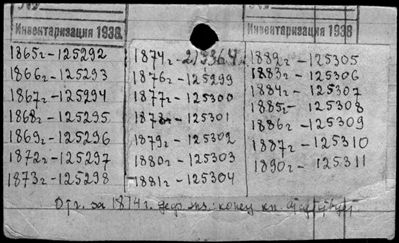 Инвентаризация 1938
Инвентаризация 1938
1865г-125292
1866г-125293
1867г-125294
1868г-125295
1869г-125296
1872г-125297
1873г-125298
1874г-219364
1876г-125299
1877г-125300
1878г-125301
1879г-125302
1880г-125303
1881г-125304
1882г-125305
1883г-125306
1884г-125307
1885г-125308
1886г-125309
1887г-125310
1890г-125311
за 1874г. конец кн.